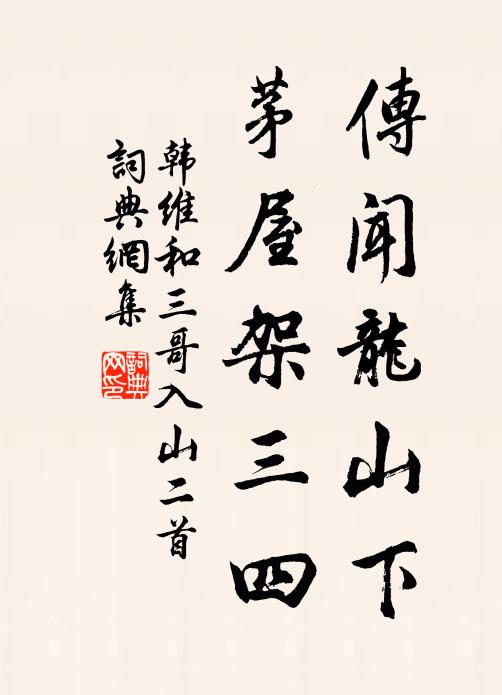 傳聞龍山下
茅屋架三四
韩維和三哥入山二首
詞典網集
詞典网印